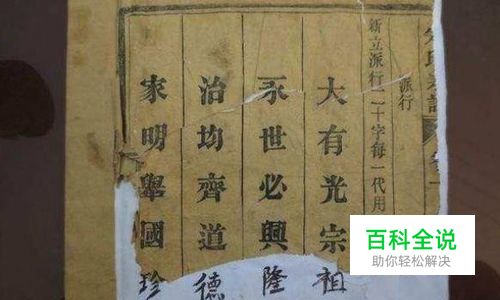 派行
新立派行二十字每一代用
大有光宗祖
永世必興隆
治均齊道德
家明舉國珍
百科全说
助你轻松解决